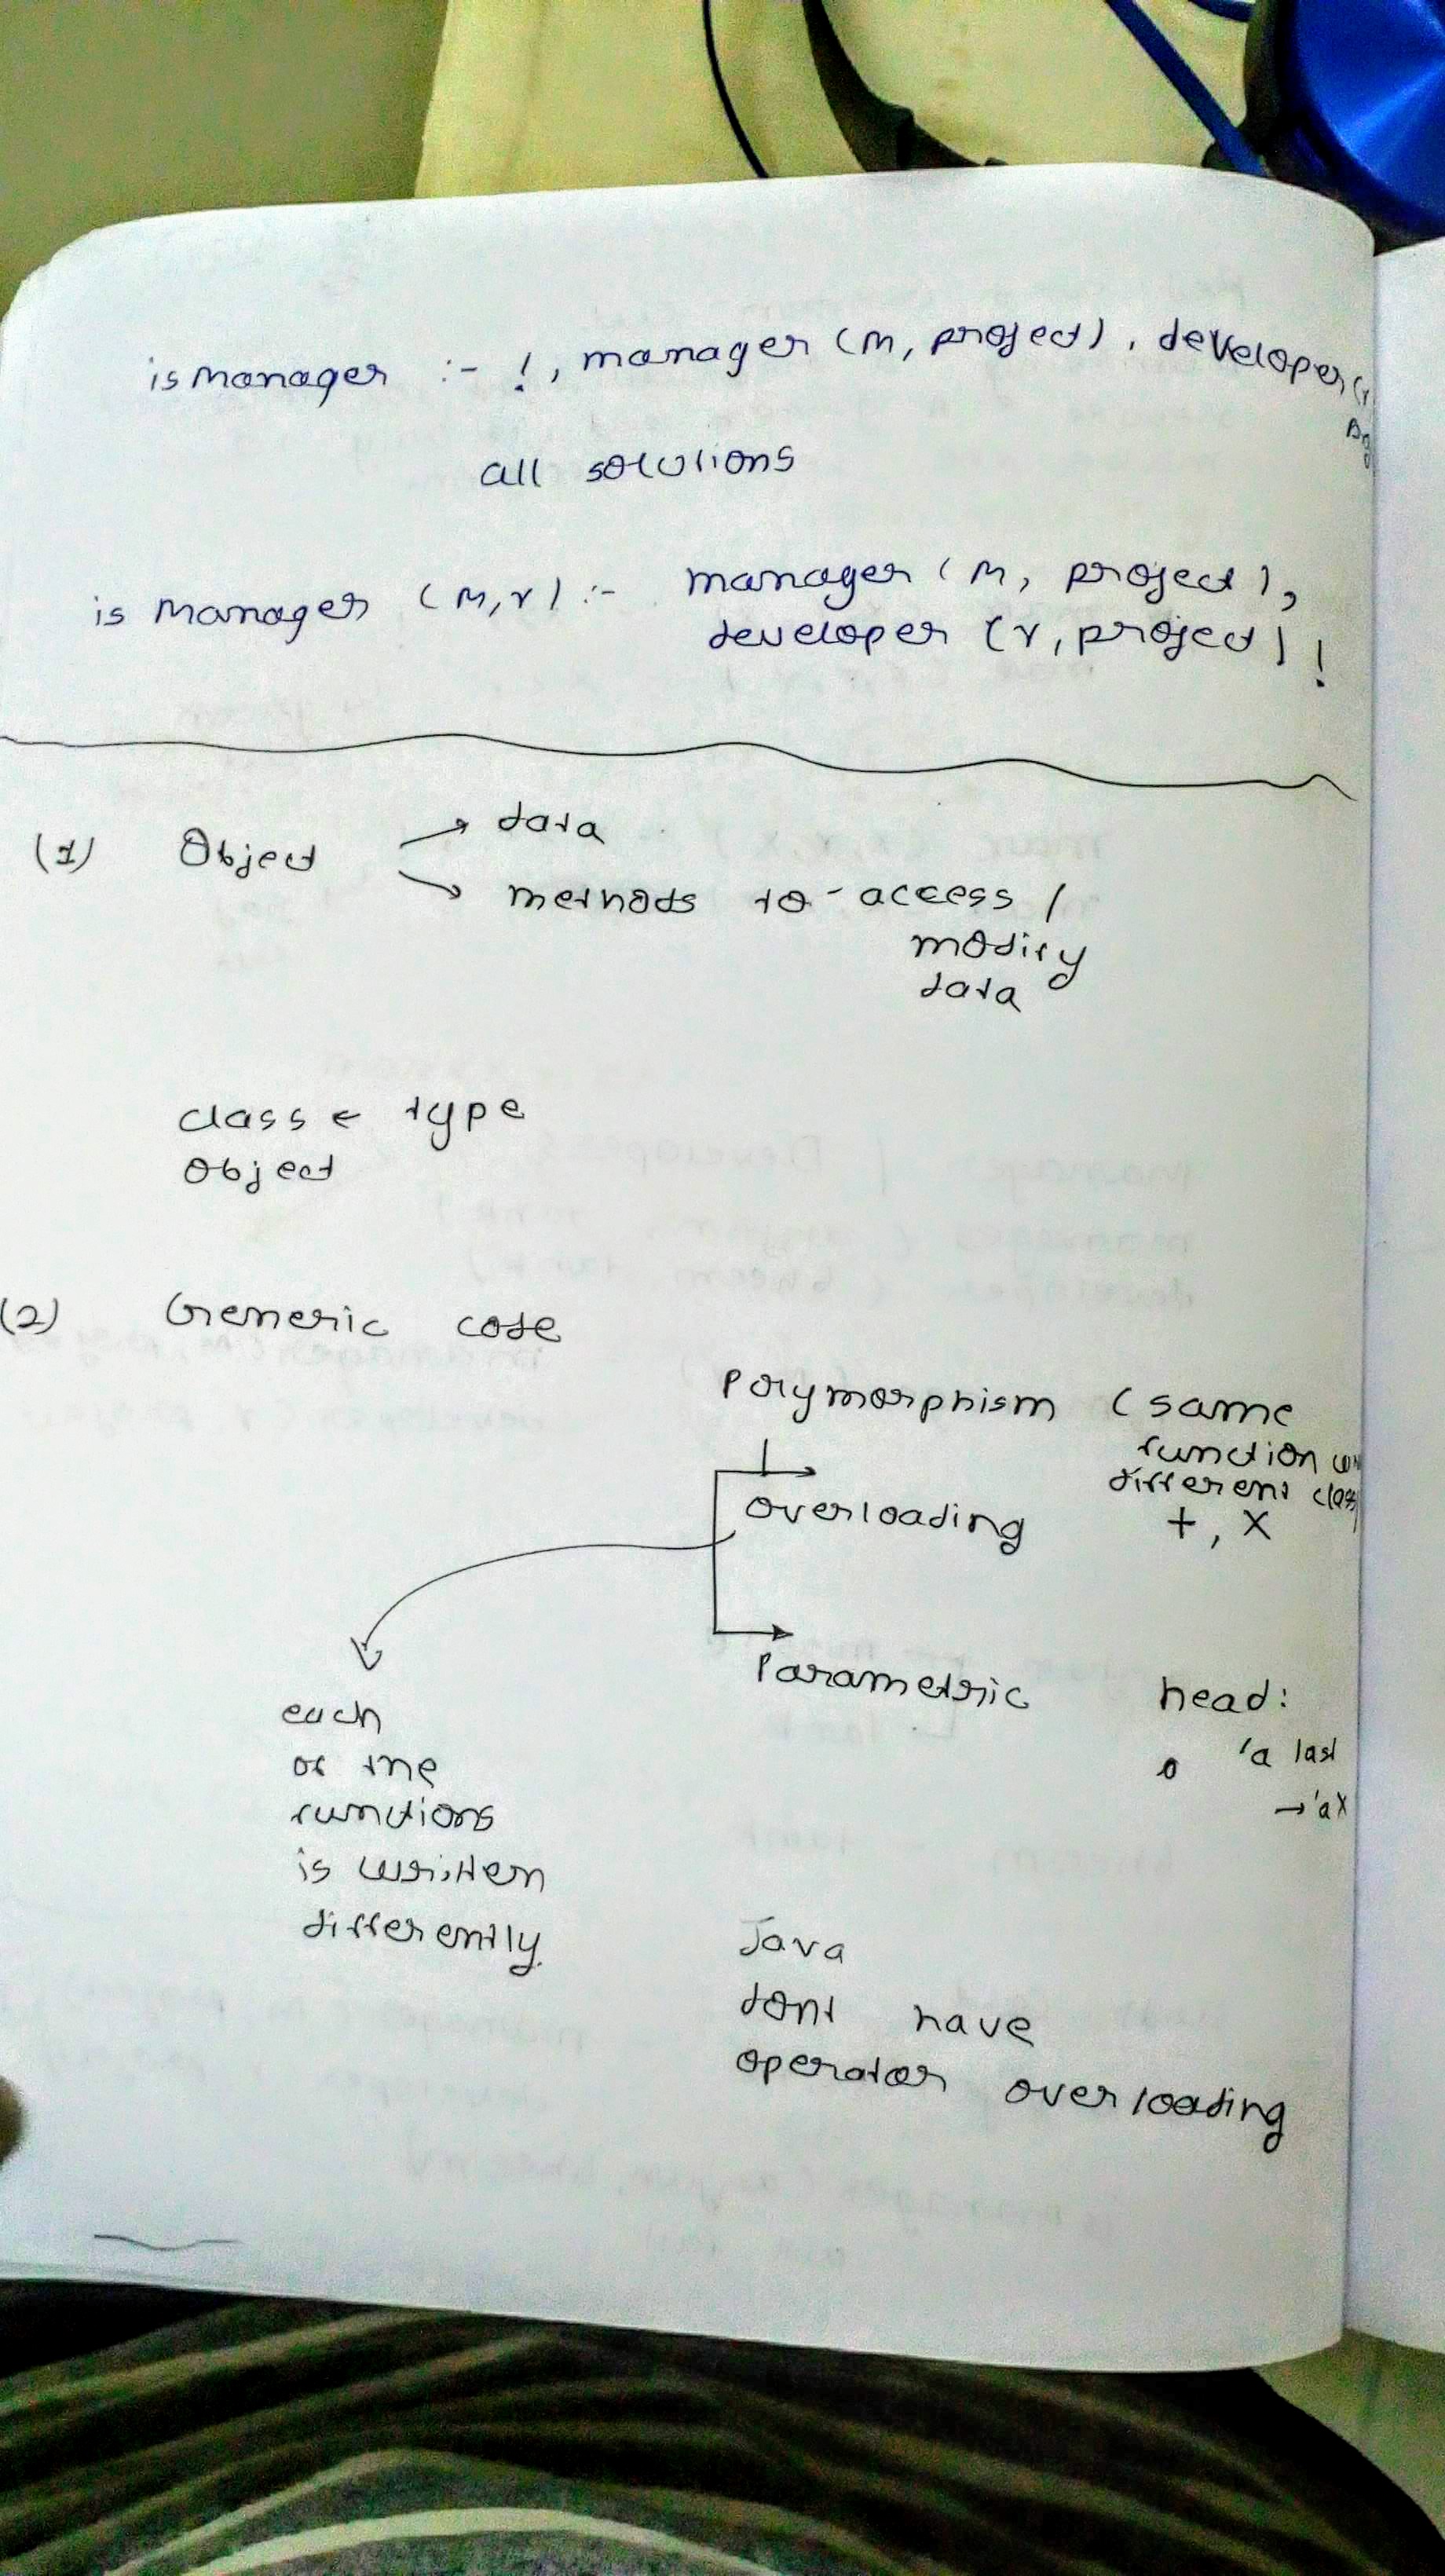 ismanager :- !, manager (M, project), developer (Y
all solutions
is manager (M,Y) :- manager (M, project),
developer (Y, project) !
(1) Object → data
→ methods to access /
modify
data
class ← type
object
(2) Generic code
Polymorphism (same
function
different class
overloading +, X
Parametric head:
'a last
→ 'a
each
of the
functions
is written
differently.
Java
dont have
operator overloading